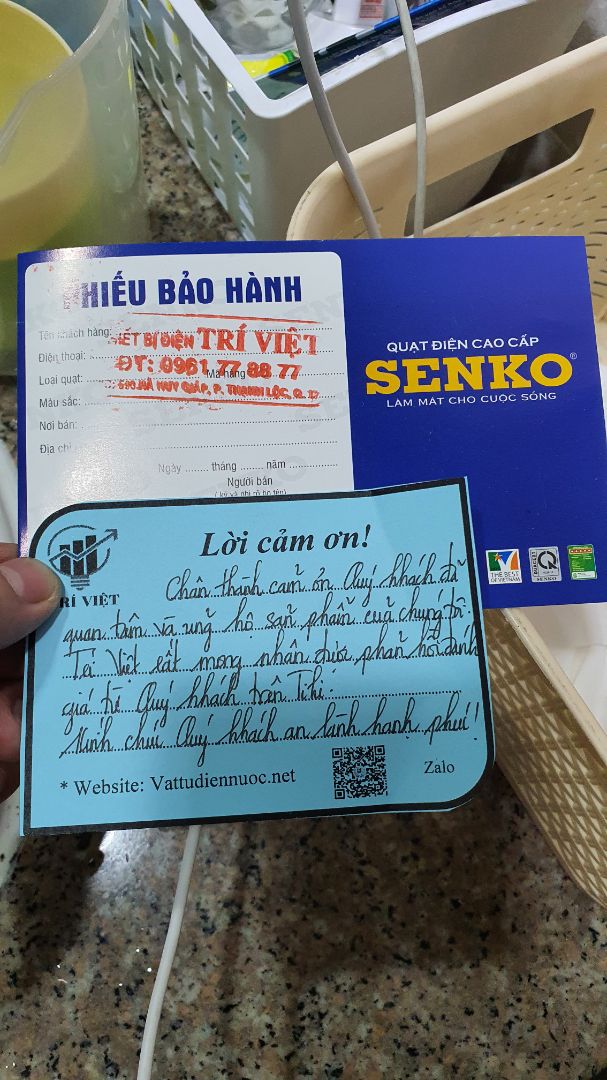 HIẾU BẢO HÀNH
Tên khách hàng:
THIẾT BỊ ĐIỆN TRÍ VIỆT
Điện thoại:
ĐT: 0961 77 88 77
Loại quạt: Mã hàng
HÀ HUY GIÁP, P. THẠNH LỘC, Q. 12
Màu sắc:
Nơi bán:
Địa chỉ
Ngày ........ tháng ....... năm
Người bán
(ký và ghi rõ họ tên)
QUẠT ĐIỆN CAO CẤP
SENKO®
LÀM MÁT CHO CUỘC SỐNG
THE BEST
OF VIETNAM
QUACERT
SENKO
TRÍ VIỆT
Lời cảm ơn!
Chân thành cảm ơn Quý khách đã
quan tâm và ủng hộ sản phẩm của chúng tôi.
Trí Việt rất mong nhận được phản hồi đánh
giá từ Quý khách trên Tiki.
Kính chúc Quý khách an lành hạnh phúc!
* Website: Vattudiennuoc.net
Zalo